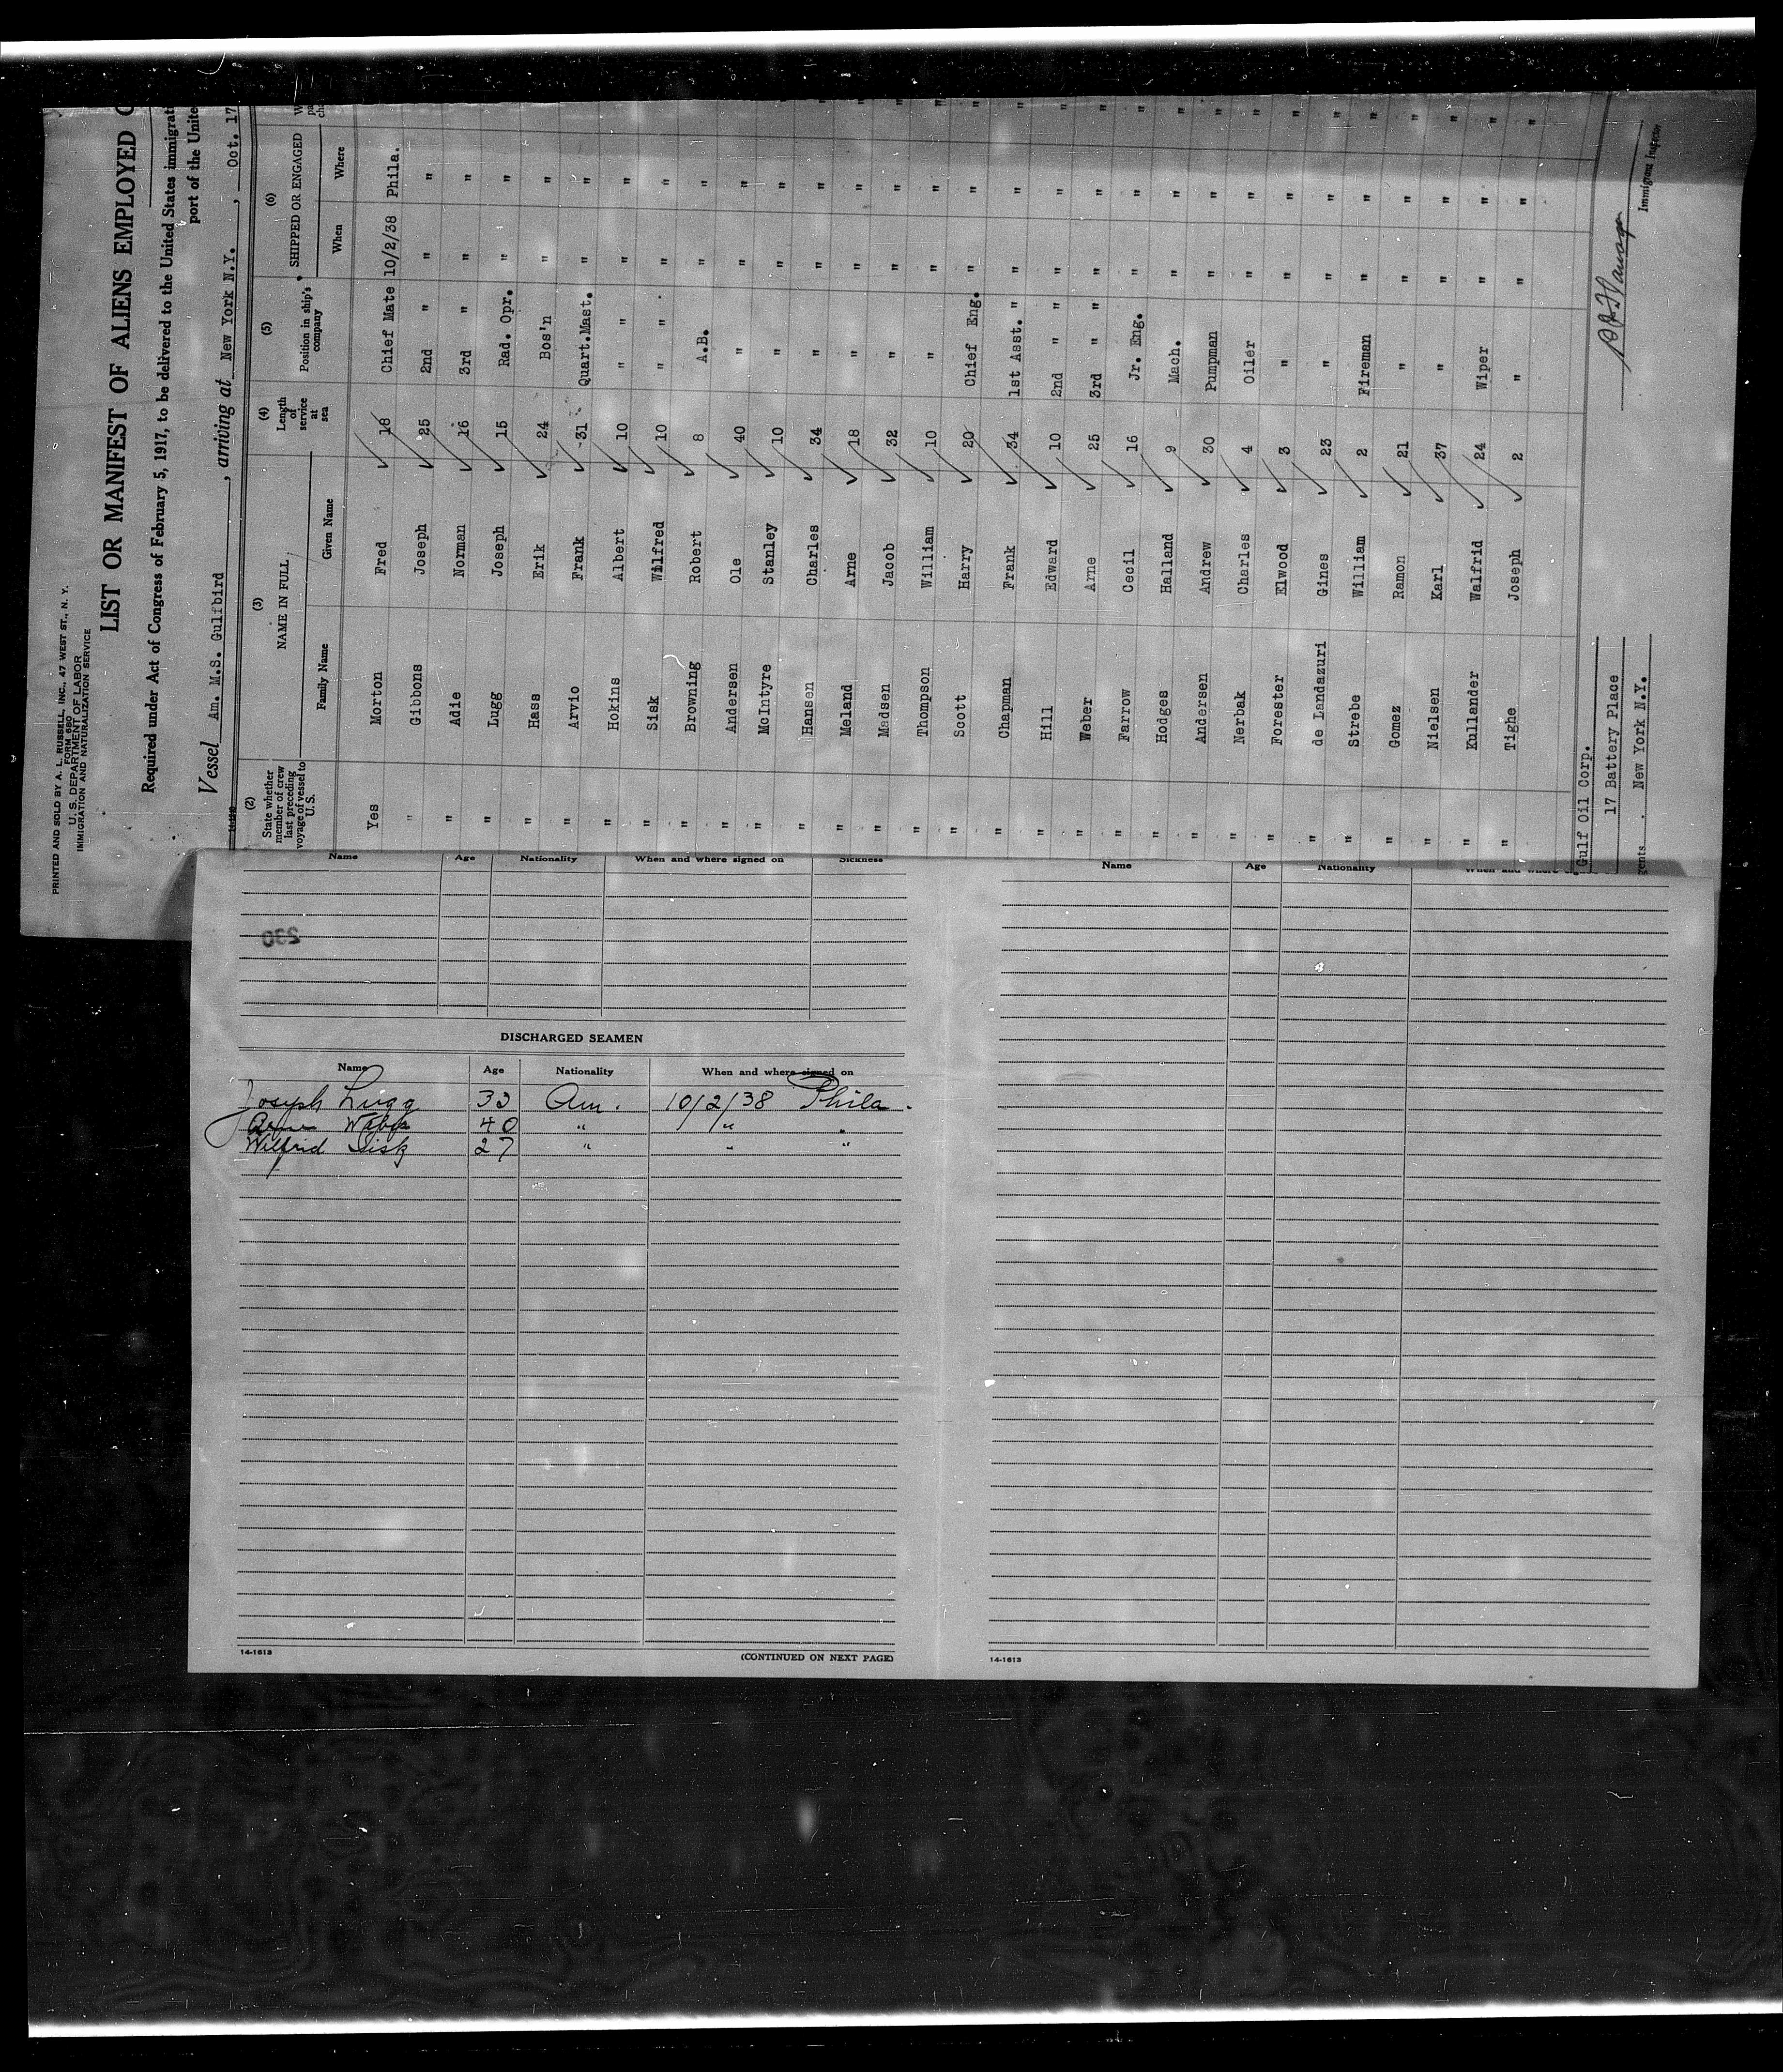 PRINTED AND SOLD BY A. L. RUSSELL, INC., 47 WEST ST., N. Y.
FORM 680
U. S. DEPARTMENT OF LABOR
IMMIGRATION AND NATURALIZATION SERVICE
LIST OR MANIFEST OF ALIENS EMPLOYED
Required under Act of Congress of February 5, 1917, to be delivered to the United States immigrat
port of the Unite
Vessel Am. M.S. Gulfbird, arriving at New York N.Y., Oct. 17
(2) (3) (4) (5) (6)
State whether member of crew last preceding voyage of vessel to U.S. NAME IN FULL Length of service at sea Position in ship's company SHIPPED OR ENGAGED
Family Name Given Name When Where
Yes Morton Fred 18 Chief Mate 10/2/38 Phila.
" Gibbons Joseph 25 2nd " " "
" Adie Norman 16 3rd " " "
" Lugg Joseph 15 Rad. Opr. " "
" Hass Erik 24 Bos'n " "
" Arvio Frank 31 Quart.Mast. " "
" Hokins Albert 10 " " " "
" Sisk Wilfred 10 " " " "
" Browning Robert 8 A.B. " "
" Andersen Ole 40 " " "
" McIntyre Stanley 10 " " "
" Hansen Charles 34 " " "
" Meland Arne 18 " " "
" Madsen Jacob 32 " " "
" Thompson William 10 " " "
" Scott Harry 20 Chief Eng. " "
" Chapman Frank 34 1st Asst. " " "
" Hill Edward 10 2nd " " " "
" Weber Arne 25 3rd " " " "
" Farrow Cecil 16 Jr. Eng. " "
" Hodges Halland 9 Mach. " "
" Andersen Andrew 30 Pumpman " "
" Nerbak Charles 4 Oiler " "
" Forester Elwood 3 " " "
" de Landazuri Gines 23 " " "
" Strebe William 2 Fireman " "
" Gomez Ramon 21 " " "
" Nielsen Karl 37 " " "
" Kullander Walfrid 24 Wiper " "
" Tighe Joseph 2 " " "
Gulf Oil Corp.
17 Battery Place
gents New York N.Y.
Immigrant Inspector
Name Age Nationality When and where signed on Sickness
230
DISCHARGED SEAMEN
Name Age Nationality When and where signed on
Joseph Lugg 33 Am. 10/2/38 Phila.
40 " " "
Wilfrid Sisk 27 " " "
14-1613 (CONTINUED ON NEXT PAGE)
Name Age Nationality When and where
14-1613